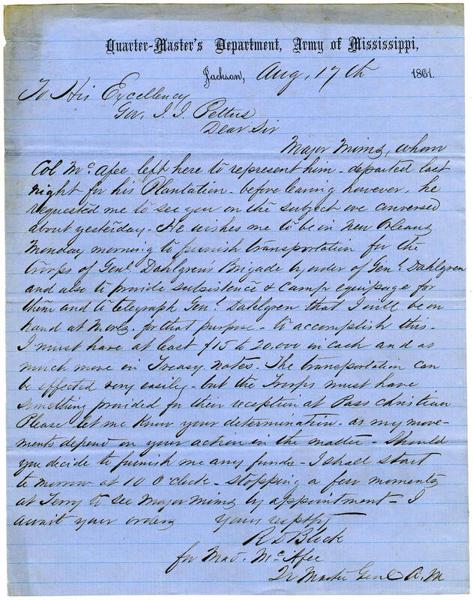 Quarter-Master's Department, Army of Mississippi,
Jackson, Aug. 17th 1861.
To His Excellency
Gov. J. J. Pettus
Dear Sir
Major Mims, whom
Col McAfee left here to represent him - departed last
night for his Plantation - before leaving however, he
requested me to see you on the subject we conversed
about yesterday. He wishes me to be in New Orleans
Monday morning to furnish transportation for the
troops of Genl Dahlgrens Brigade by order of Genl Dahlgren
and also to provide subsistence & camp equipage for
them and to telegraph Genl Dahlgren that I will be on
hand at for that purpose - to accomplish this -
I must have at least $15 to 20,000 in cash and as
much more on Treasy notes. The transportation can
be effected very easily - but the Troops must have
something provided for their reception at Pass Christian
Please let me know your determination - as my move-
ments depend on your action in the matter - Should
you decide to furnish me any funds - I shall start
to morrow at 10 O'clock - stopping a few moments
at Terry to see Major Mims by appointment - I
await your orders Yours
for McAfee
Qr Master Genl A. M